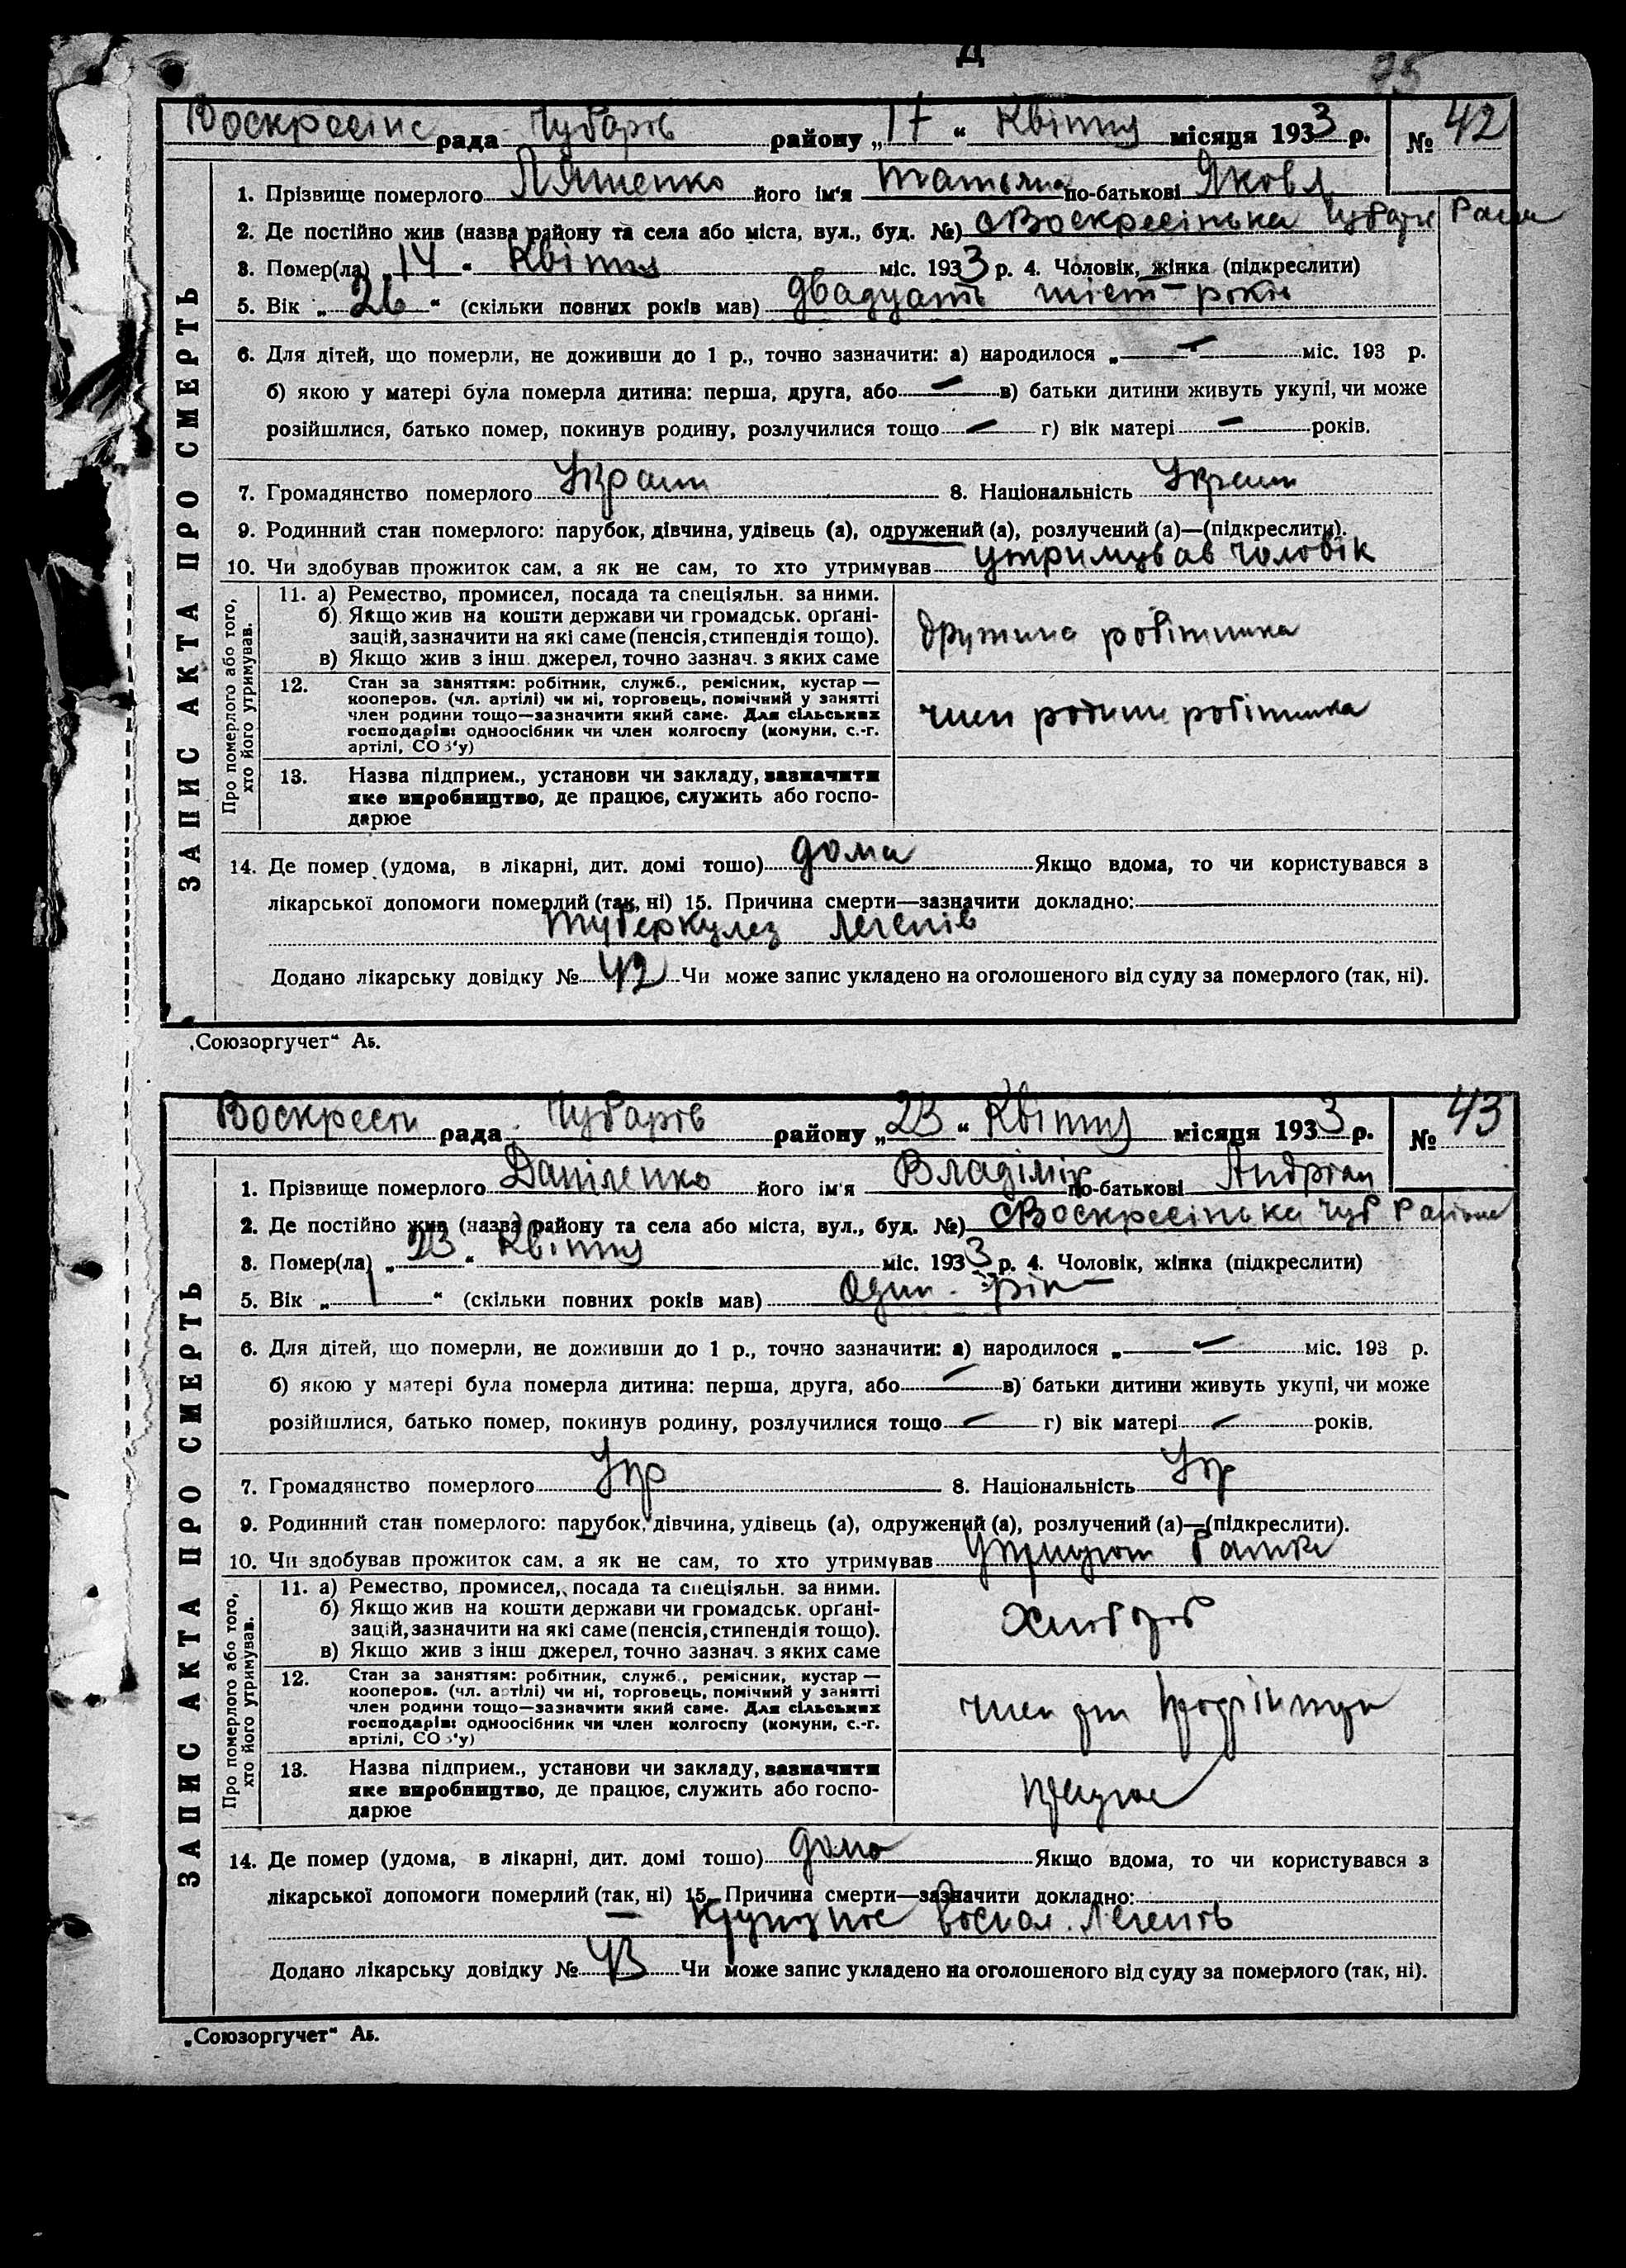 Д
Воскресінс рада Чубарів району „17“ Квітня місяця 1933 р. № 42
ЗАПИС АКТА ПРО СМЕРТЬ
1. Прізвище померлого Ляшенко його ім'я Татьяна по-батькові Яковл
2. Де постійно жив (назва району та села або міста, вул., буд. №) с Воскресінька Чубарів
3. Помер(ла) „14“ Квітня міс. 1933 р. 4. Чоловік, жінка (підкреслити)
5. Вік „26“ (скільки повних років мав) двадцять шіст років
6. Для дітей, що померли, не доживши до 1 р., точно зазначити: а) народилося „—“ міс. 193 р.
б) якою у матері була померла дитина: перша, друга, або — в) батьки дитини живуть укупі, чи може
розійшлися, батько помер, покинув родину, розлучилися тощо — г) вік матері — років.
7. Громадянство померлого Украін 8. Національність Украін
9. Родинний стан померлого: парубок, дівчина, удівець (а), одружений (а), розлучений (а)—(підкреслити).
10. Чи здобував прожиток сам, а як не сам, то хто утримував утримував чоловік
Про померлого або того, хто його утримував.
11. а) Ремество, промисел, посада та спеціяльн. за ними.
б) Якщо жив на кошти держави чи громадськ. органі-
зацій, зазначити на які саме (пенсія, стипендія тощо).
в) Якщо жив з інш. джерел, точно зазнач. з яких саме
дружина робітника
12. Стан за заняттям: робітник, служб., ремісник, кустар —
кооперов. (чл. артілі) чи ні, торговець, помічний у занятті
член родини тощо—зазначити який саме. Для сільських
господарів: одноосібник чи член колгоспу (комуни, с.-г.
артілі, СОЗ'у)
член родини робітника
13. Назва підприєм., установи чи закладу, зазначити
яке виробництво, де працює, служить або госпо-
дарює
14. Де помер (удома, в лікарні, дит. домі тощо) дома Якщо вдома, то чи користувався з
лікарської допомоги померлий (так, ні) 15. Причина смерти—зазначити докладно:
туберкулез легенів
Додано лікарську довідку № 42 Чи може запис укладено на оголошеного від суду за померлого (так, ні).
„Союзоргучет“ Аь.
Воскресен рада Чубарів району „23“ Квітня місяця 1933 р. № 43
ЗАПИС АКТА ПРО СМЕРТЬ
1. Прізвище померлого Даніленко його ім'я Владімір по-батькові Андріян
2. Де постійно жив (назва району та села або міста, вул., буд. №) с Воскресінька Чуб Району
3. Помер(ла) „23“ Квітня міс. 1933 р. 4. Чоловік, жінка (підкреслити)
5. Вік „1“ (скільки повних років мав) один рік
6. Для дітей, що померли, не доживши до 1 р., точно зазначити: а) народилося „—“ міс. 193 р.
б) якою у матері була померла дитина: перша, друга, або — в) батьки дитини живуть укупі, чи може
розійшлися, батько помер, покинув родину, розлучилися тощо — г) вік матері — років.
7. Громадянство померлого Укр 8. Національність Укр
9. Родинний стан померлого: парубок, дівчина, удівець (а), одружений (а), розлучений (а)—(підкреслити).
10. Чи здобував прожиток сам, а як не сам, то хто утримував батьки
Про померлого або того, хто його утримував.
11. а) Ремество, промисел, посада та спеціяльн. за ними.
б) Якщо жив на кошти держави чи громадськ. органі-
зацій, зазначити на які саме (пенсія, стипендія тощо).
в) Якщо жив з інш джерел, точно зазнач. з яких саме
Хлібороб
12. Стан за заняттям: робітник, служб., ремісник, кустар —
кооперов. (чл. артілі) чи ні, торговець, помічний у занятті
член родини тощо—зазначити який саме. Для сільських
господарів: одноосібник чи член колгоспу (комуни, с.-г.
артілі, СОЗ'у)
член
13. Назва підприєм., установи чи закладу, зазначити
яке виробництво, де працює, служить або госпо-
дарює
працює
14. Де помер (удома, в лікарні, дит. домі тощо) дома Якщо вдома, то чи користувався з
лікарської допомоги померлий (так, ні) 15. Причина смерти—зазначити докладно:
Крупозное воспал. легенів
Додано лікарську довідку № 43 Чи може запис укладено на оголошеного від суду за померлого (так, ні).
„Союзоргучет“ Аь.